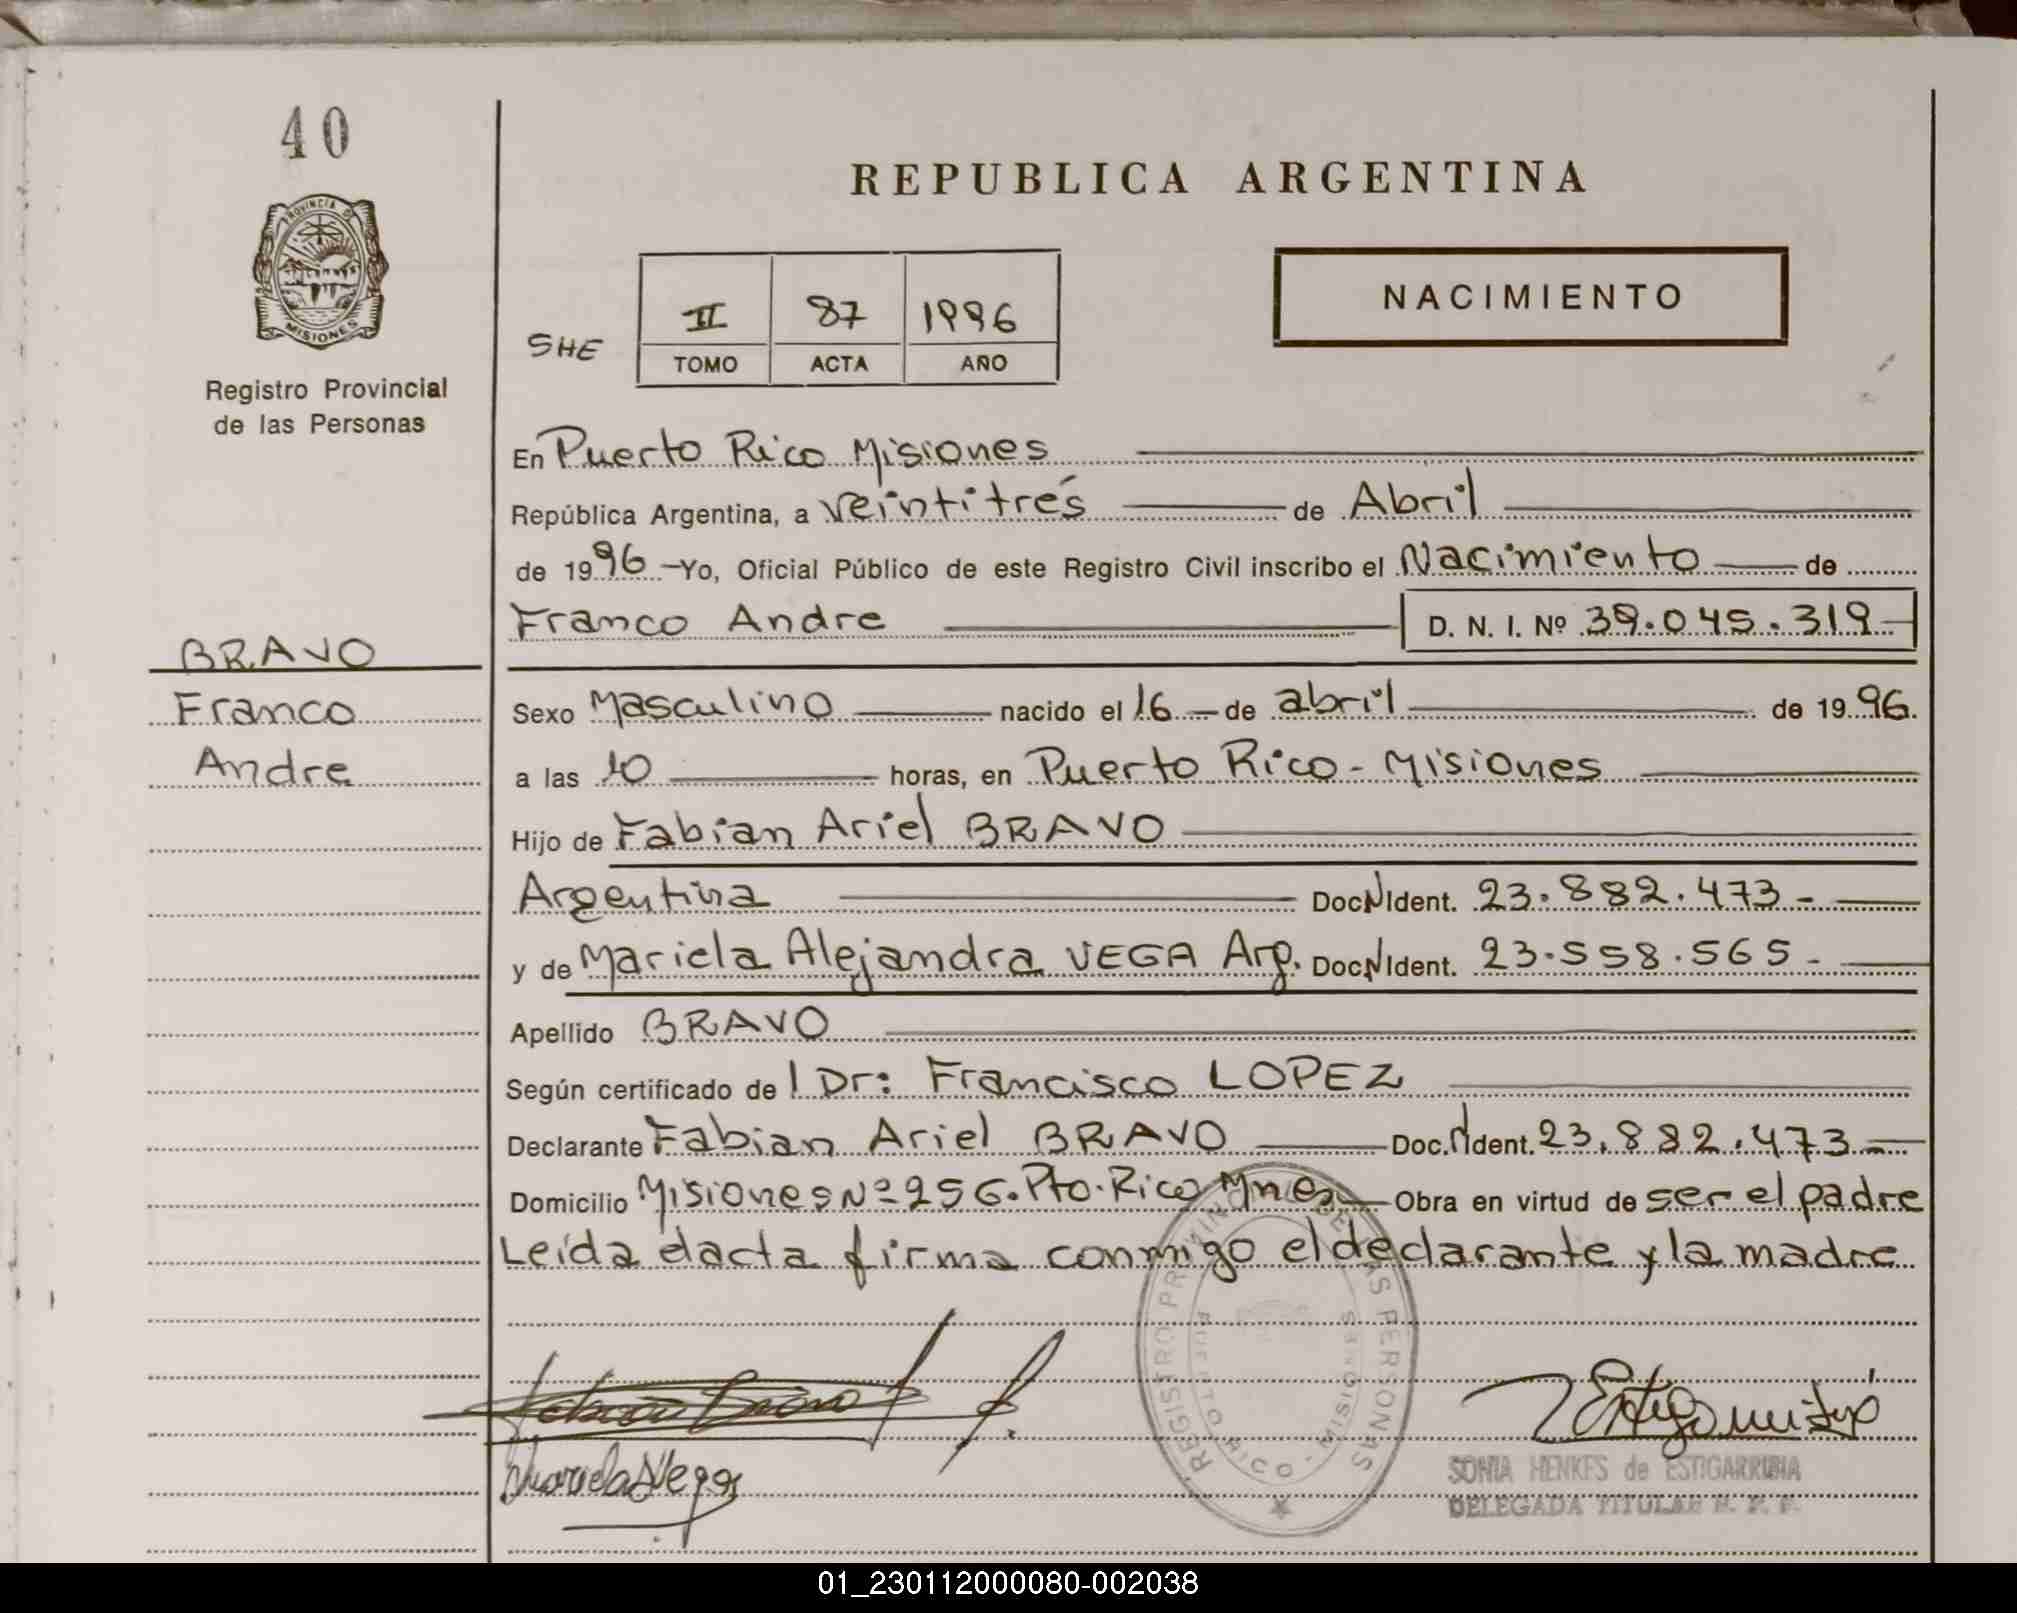 40
PROVINCIA DE
MISIONES
Registro Provincial
de las Personas
REPUBLICA ARGENTINA
NACIMIENTO
SHE
II 87 1996
TOMO ACTA AÑO
En Puerto Rico Misiones
República Argentina, a veintitrés de Abril
de 1996 - Yo, Oficial Público de este Registro Civil inscribo el Nacimiento de
Franco Andre D. N. I. Nº 39.045.319
BRAVO
Franco
Andre
Sexo Masculino nacido el 16 de abril de 1996.
a las 10 horas, en Puerto Rico - Misiones
Hijo de Fabian Ariel BRAVO
Argentina Doc.N.Ident. 23.882.473-
y de Mariela Alejandra VEGA Arg. Doc.N.Ident. 23.558.565-
Apellido BRAVO
Según certificado de l Dr: Francisco LOPEZ
Declarante Fabian Ariel BRAVO Doc.N.Ident. 23.882.473-
Domicilio Misiones Nº 256. Pto. Rico Mnes Obra en virtud de ser el padre
Leída el acta firma conmigo el declarante y la madre
REGISTRO PROVINCIAL DE LAS PERSONAS
PUERTO RICO - MISIONES
Mariela Vega
SONIA HENKES de ESTIGARRIBIA
DELEGADA TITULAR R. P. P.
01_230112000080-002038